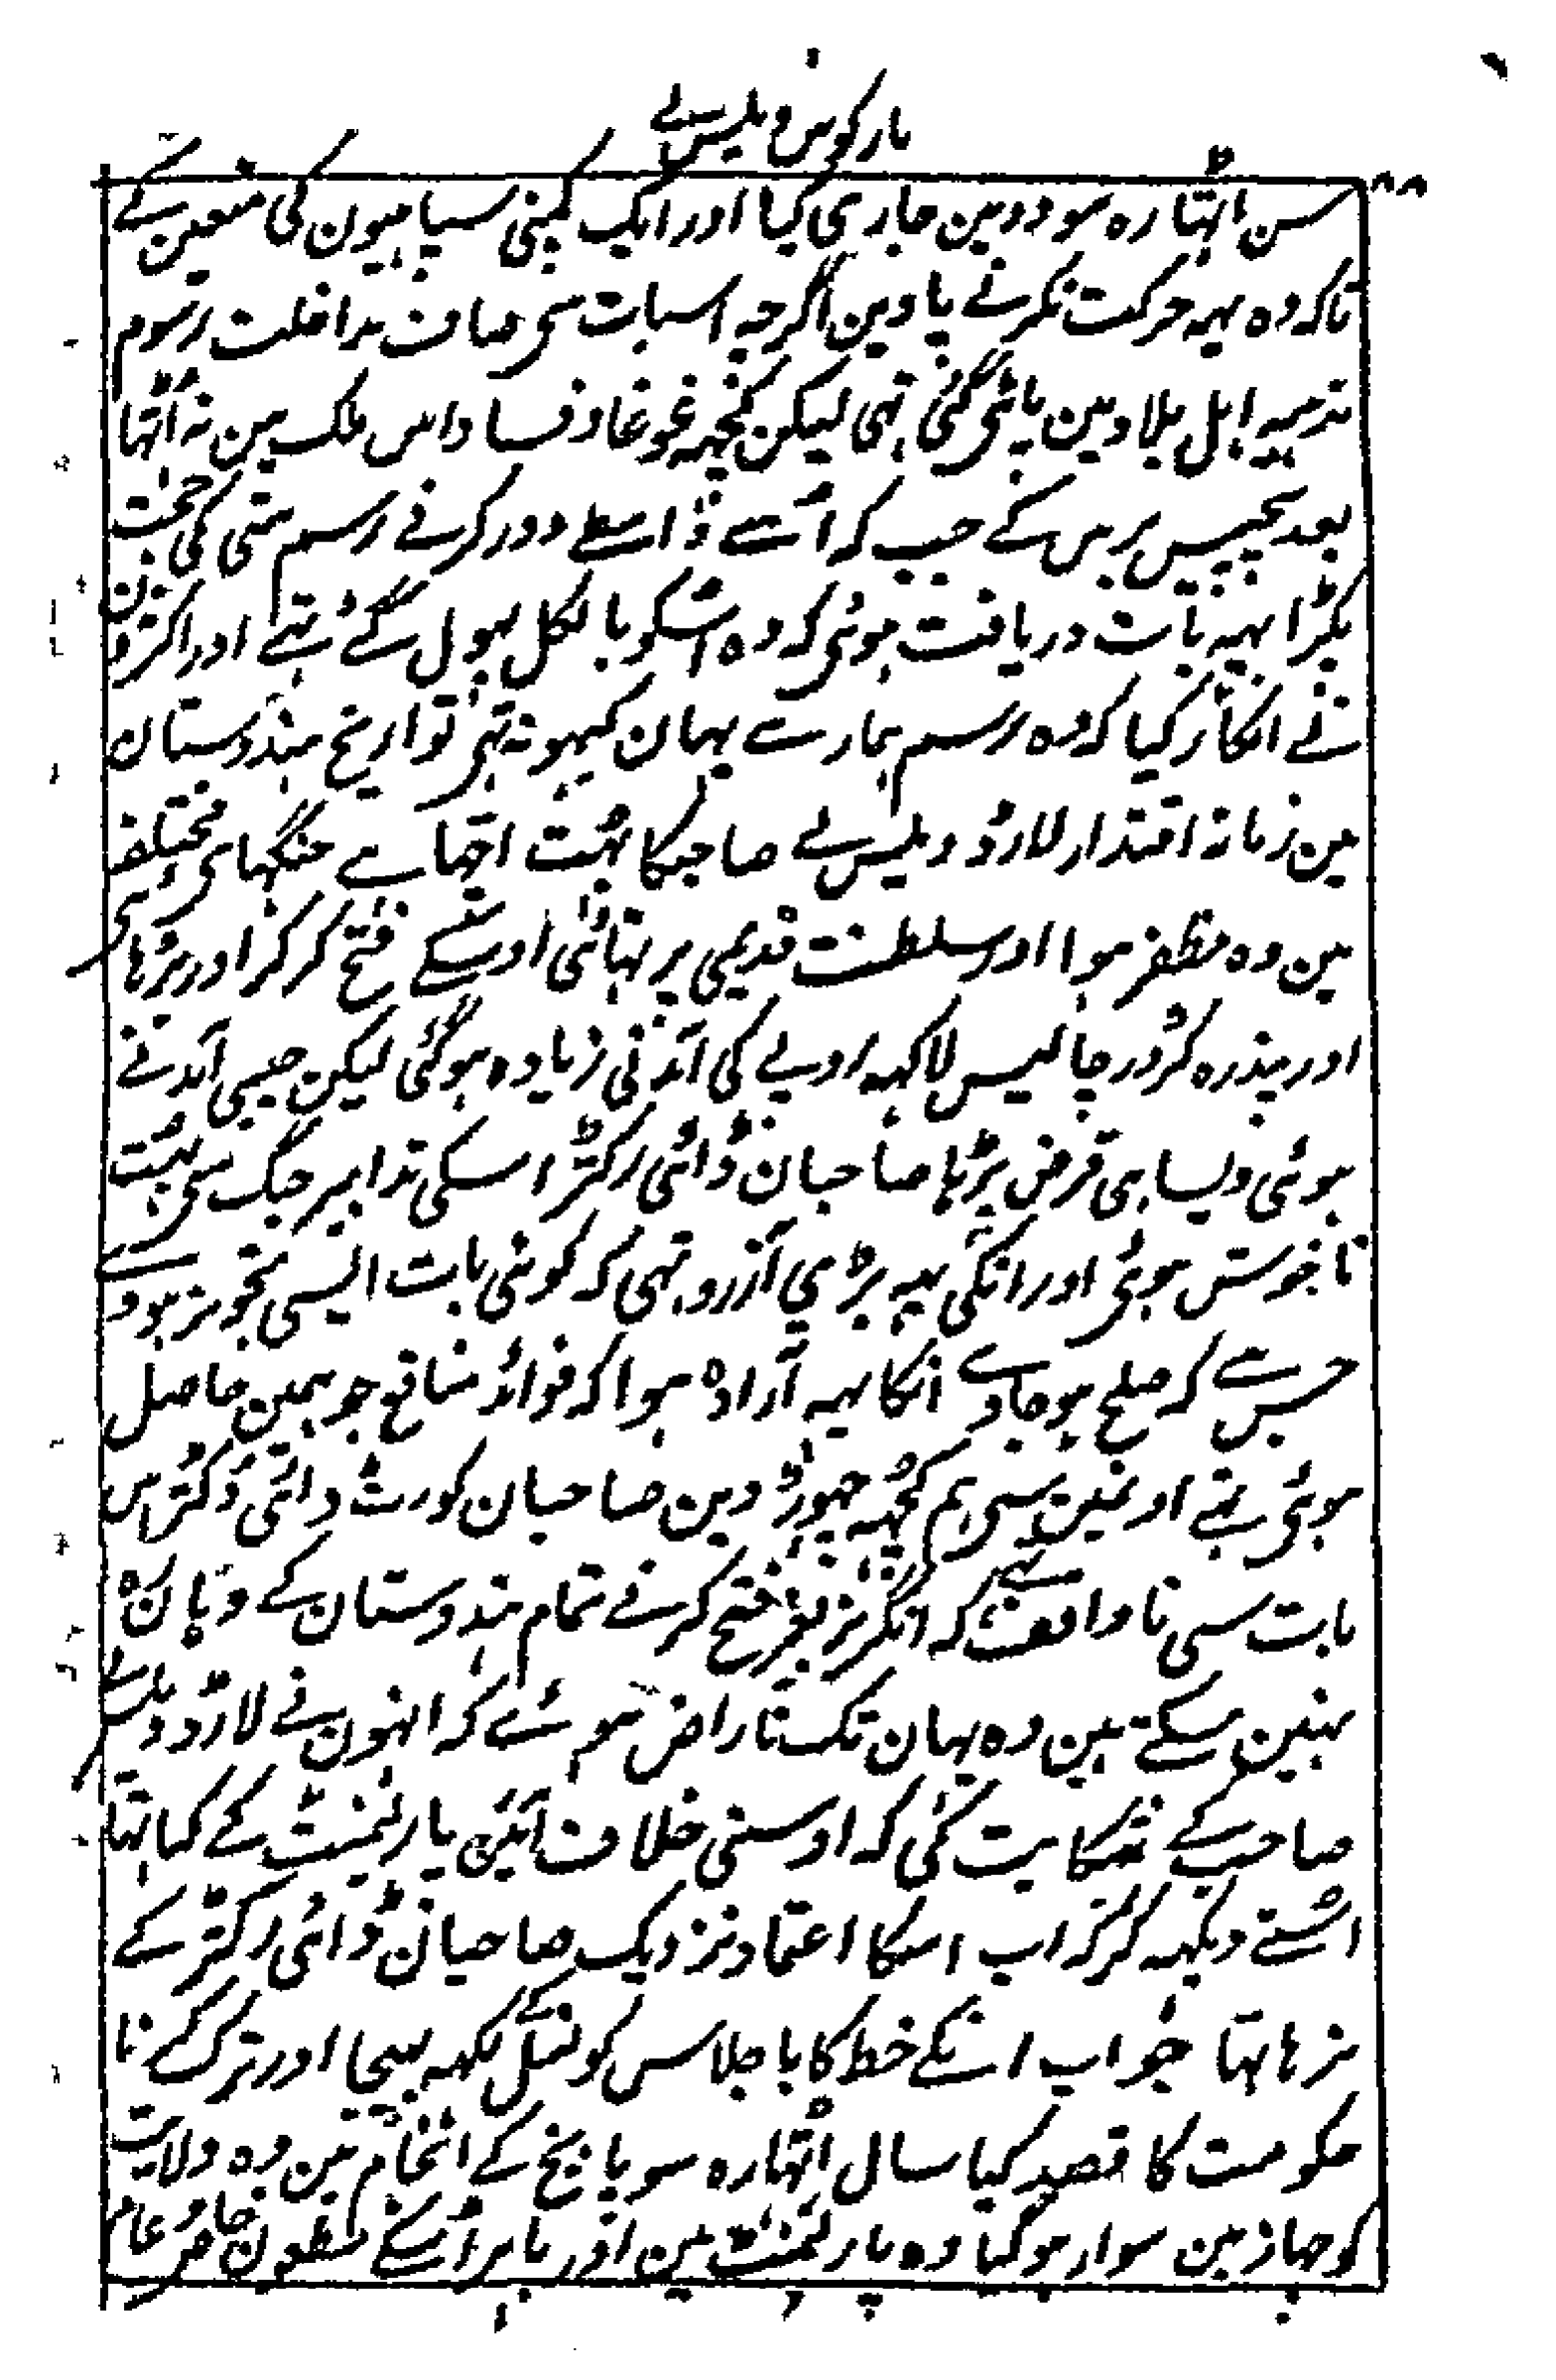 مارکوس ویلیس لے
سن اٹہارہ سو دو مین جاری کیا اور ایک کمپنی سپاہیون کی متعین کے
تاکہ وہ یہہ حرکت نکرنے پاوین اگرچہ اسبات سی صاف مداخلت رسوم
مذہبیہ اہل بلاد مین پائی گئی تہی لیکن کچہہ غوغا و فساد اس ملک مین نہ اٹہا
بعد پچیس برس کے جب کہ اُسے واسطے دور کرنے رسم ستی کی حجت
پکڑا یہہ بات دریافت ہوئی کہ وہ اسکو بالکل بہول گئے تہے اور اکثرون
نے انکار کیا کہ وہ رسم ہمارے یہان کبہو نہ تہی تواریخ ہندوستان
مین زمانہ اقتدار لارڈ ویلیس لے صاحبکا بہت اچہا ہے جنگہای مختلفہ
مین وہ مظفر ہوا اور سلطنت قدیمی پر تہائی اوسکے فتح کر کر اور بڑہائی
اور پندرہ کڑور چالیس لاکہہ روپے کی آمدنی زیادہ ہوگئی لیکن جیسی آمدنے
ہوئی ویسا ہی قرض بڑہا صاحبان ڈائی رکٹر اسکی تدابیر جنگ سی بہت
ناخوش ہوئی اور انکی یہہ بڑی آرزو تہی کہ کوئی بات ایسی تجویز ہووے
جس سے کہ صلح ہوجاوے انکا یہہ ارادہ ہوا کہ فوائد منافع جو ہمین حاصل
ہوئی تہے اونمین سی ہم کچہہ چہوڑ دین صاحبان کورٹ ڈائی رکٹر اس
بات سی ناواقف تہے کہ انگریز بغیر فتح کرنے تمام ہندوستان کے وہان رہ
نہین سکتے ہین وہ یہان تک ناراض ہوئے کہ انہون نے لارڈ ویلس لے
صاحب کے شکایت کی کہ اوسنی خلاف آئین پارلیمنٹ کے کیا تہا
اسنے دیکہہ کر کہ اب اسکا اعتماد نزدیک صاحبان ڈائی رکٹر کے
نرہا تہا جواب انکے خط کا باجلاس کونسل لکہہ بہیجا اور ترک کرنے
حکومت کا قصد کیا سال اٹہارہ سو پانچ کے انجام مین وہ ولایت
کو جہاز مین سوار ہوگیا وہ پارلیمنٹ مین اور باہر اُسکے مطعون خاص و عام